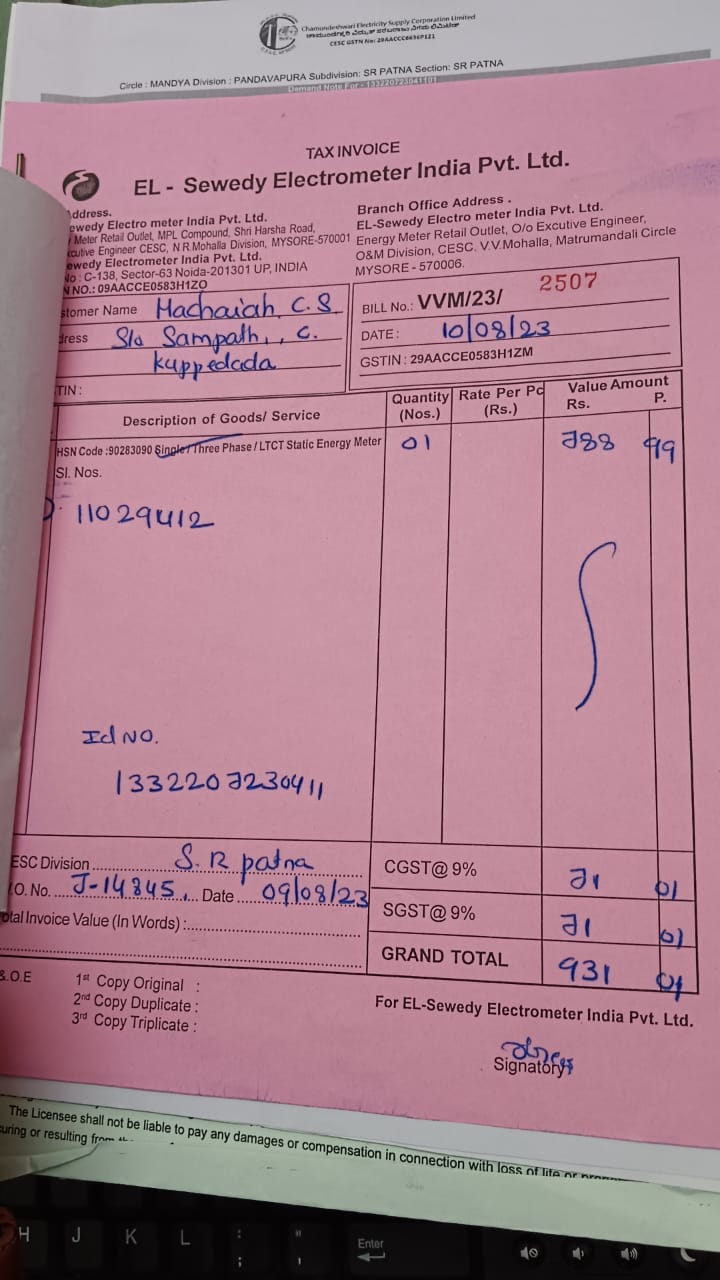 Chamundeshwari Electricity Supply Corporation Limited
CESC GSTN No: 29AACCC6636P1Z1
Circle : MANDYA Division : PANDAVAPURA Subdivision: SR PATNA Section: SR PATNA
Demand Note For - 13322072304110
TAX INVOICE
EL - Sewedy Electrometer India Pvt. Ltd.
ddress.
ewedy Electro meter India Pvt. Ltd.
Meter Retail Outlet, MPL Compound, Shri Harsha Road,
cutive Engineer CESC, N R Mohalla Division, MYSORE-570001
ewedy Electrometer India Pvt. Ltd.
No : C-138, Sector-63 Noida-201301 UP, INDIA
N NO.: 09AACCE0583H1ZO
Branch Office Address .
EL-Sewedy Electro meter India Pvt. Ltd.
Energy Meter Retail Outlet, O/o Excutive Engineer,
O&M Division, CESC. V.V.Mohalla, Matrumandali Circle
MYSORE - 570006.
stomer Name Machaiah C.S
dress S/o Sampath,, C.
Kuppedada
TIN :
BILL No.: VVM/23/ 2507
DATE : 10/08/23
GSTIN : 29AACCE0583H1ZM
Description of Goods/ Service Quantity (Nos.) Rate Per Pc (Rs.) Value Amount Rs. P.
HSN Code :90283090 Single / Three Phase / LTCT Static Energy Meter 01 788 99
Sl. Nos.
11029412
Id NO.
1332207230411
ESC Division S. R patna
.O. No. J-14845, Date 09/08/23
otal Invoice Value (In Words) :
CGST@ 9% 71 01
SGST@ 9% 71 01
GRAND TOTAL 931 01
&.O.E
1st Copy Original :
2nd Copy Duplicate :
3rd Copy Triplicate :
For EL-Sewedy Electrometer India Pvt. Ltd.
Signatory
The Licensee shall not be liable to pay any damages or compensation in connection with loss of life or
uring or resulting from
H J K L : ; " ' Enter